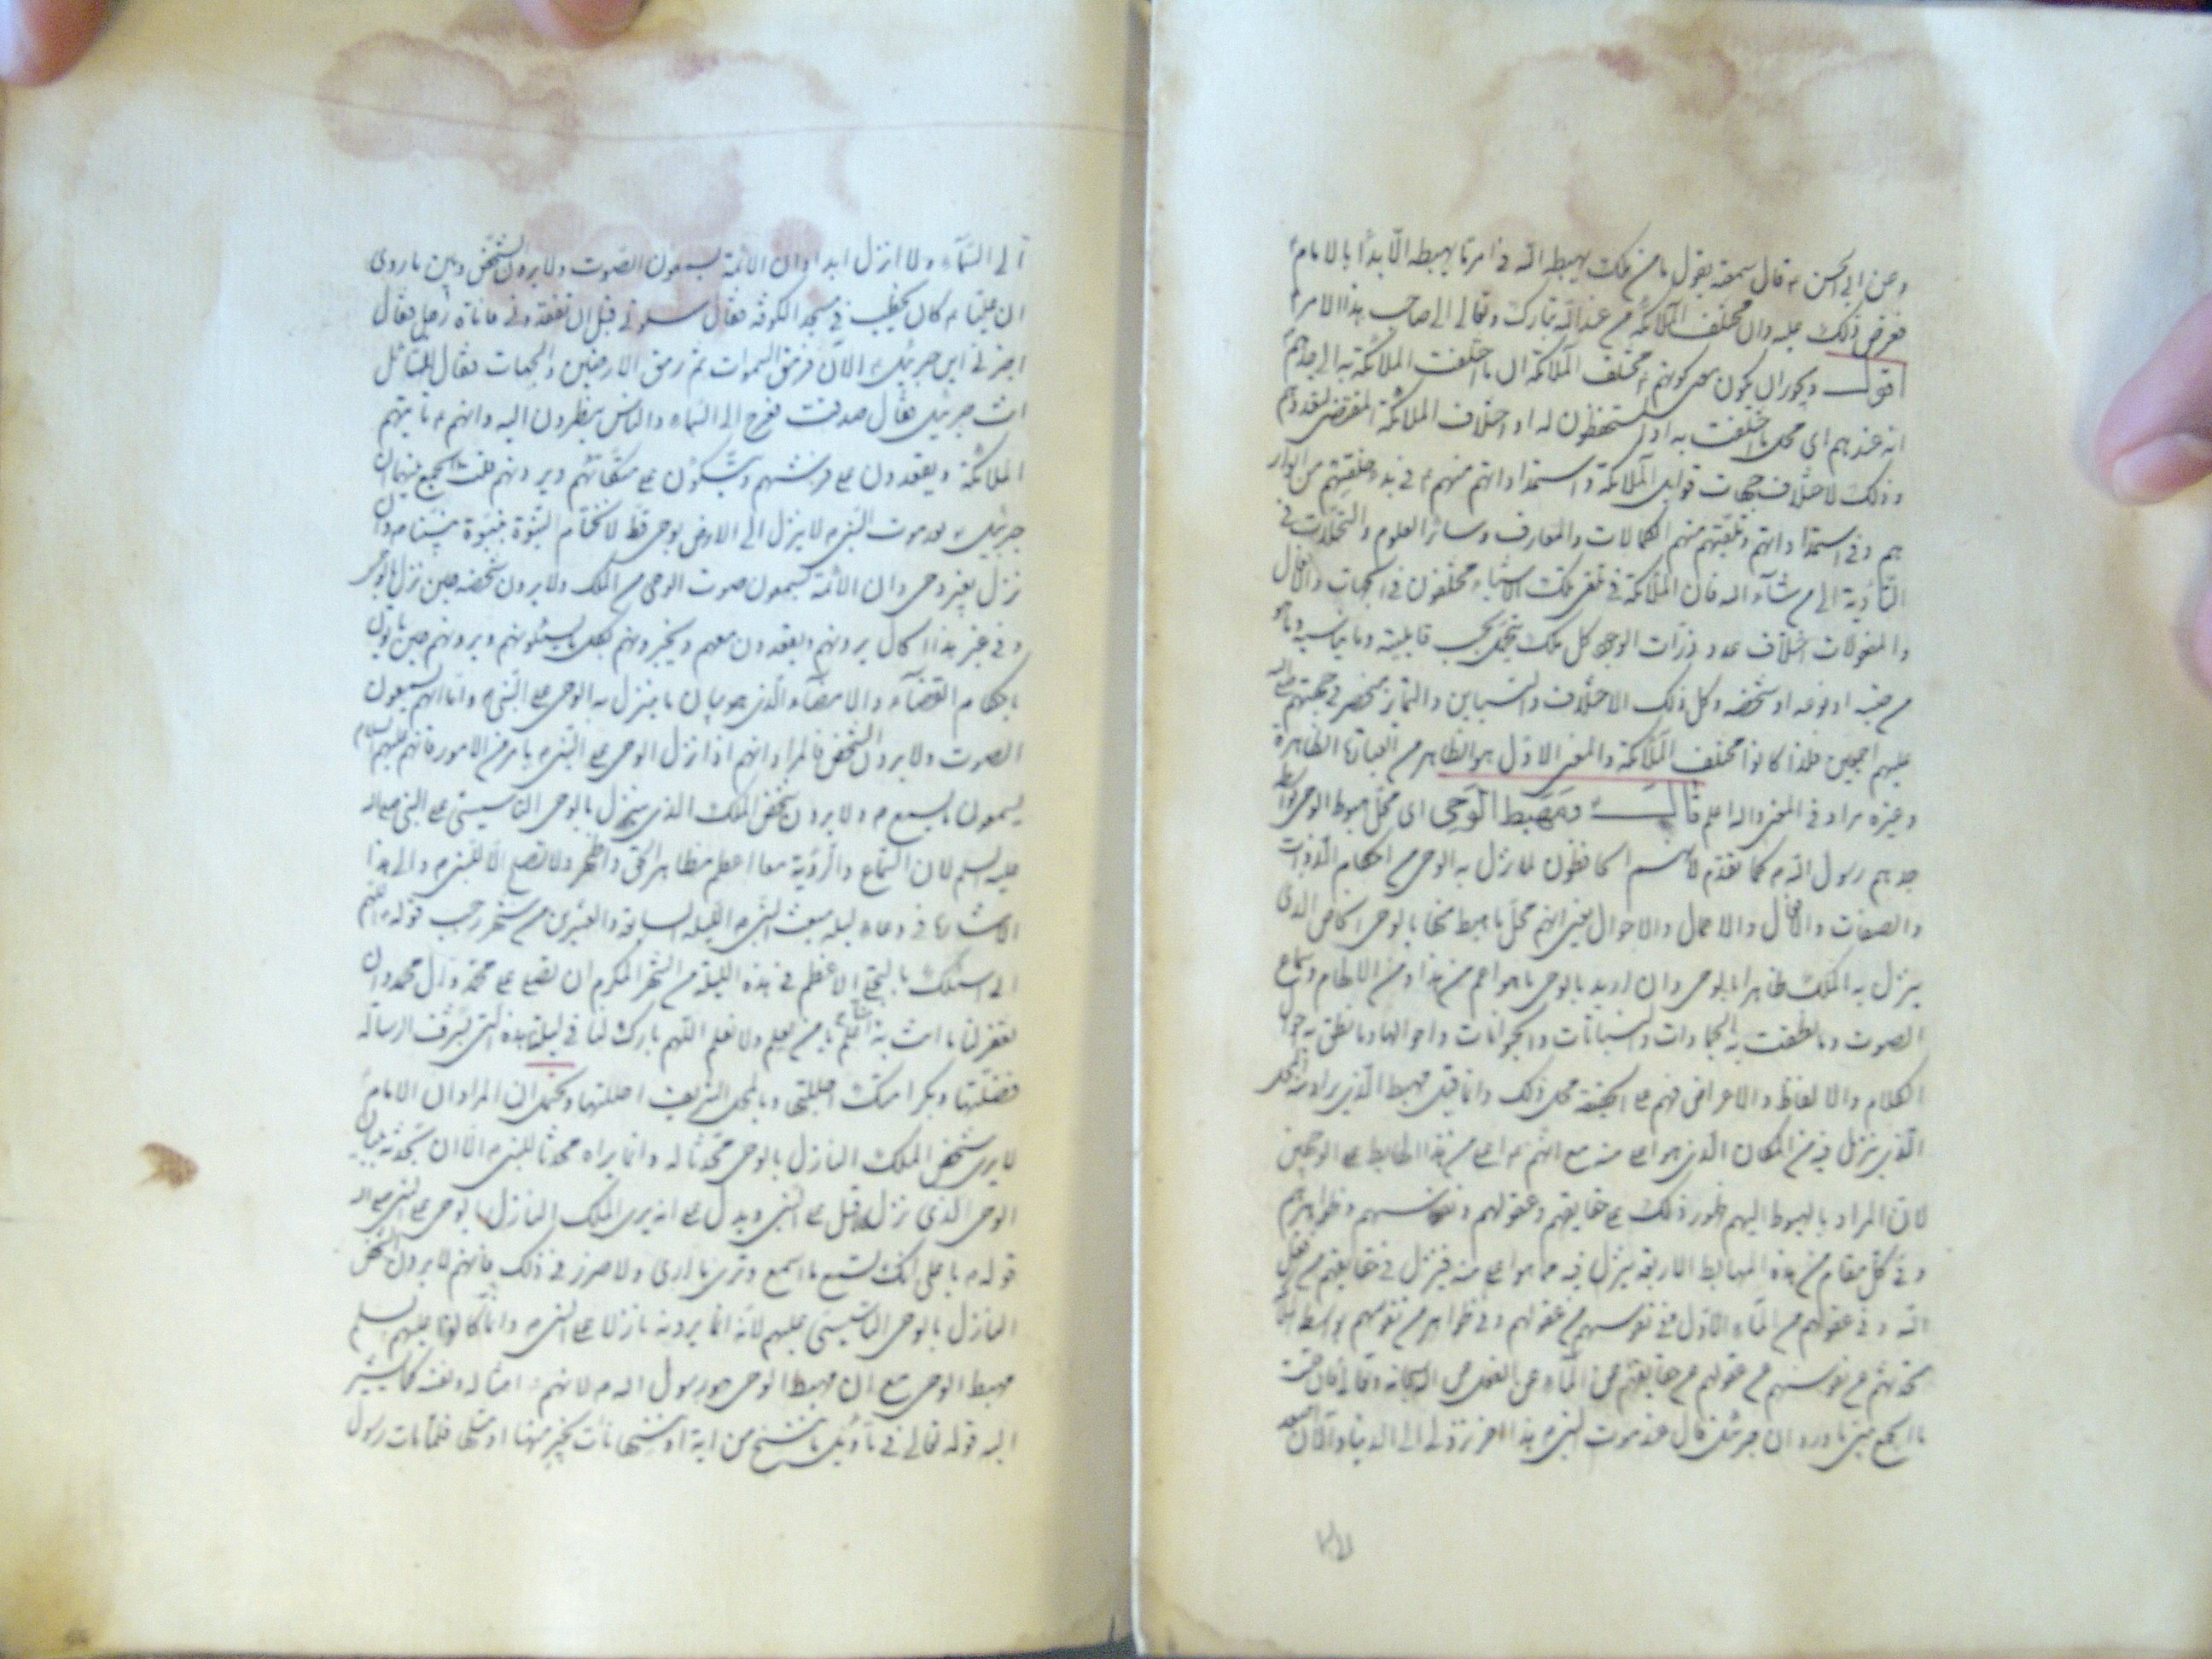 وعن ابي الحسن ع قال سمعته يقول ما من ملك يهبطه الله في امر ما يهبطه الا بدأ بالامام ع
فعرض ذلك عليه وان مختلف الملائكة من عند الله تبارك وتعالى الى صاحب هذا الامر
اقول ويجوز ان يكون معنى كونهم ع مختلف الملائكة ان ما اختلفت الملائكة به الى
انه عندهم اى محل ما اختلفت به اولى مستحفظون له او اختلاف الملائكة المقتضى لتعددهم
وذلك لاختلاف جهات قوابل الملائكة واستمداداتهم منهم ع في بدء خلقتهم من انوار
هم وفي استمداداتهم وتلقيهم منهم الكمالات والمعارف وسائر العلوم والتحملات في
التأدية الى من شاء الله فان الملائكة في تلقى تلك الاشياء مختلفون في الجهات والافعال
والمفعولات اختلاف عدد ذرات الوجود كل ملك يتحمل بحسب قابليته وما يناسبه وما هو
من جنسه او نوعه او شخصه وكل ذلك الاختلاف والتباين والتمايز منحصر في جهتهم صلى الله
عليهم اجمعين فلذا كانوا مختلف الملائكة والمعنى الاول هو الظاهر من العبارة الظاهرة
وغيره مراد في المعنى والله اعلم قال ع ومهبط الوحي اى محل هبوط الوحى
جدهم رسول الله ص كما تقدم لانهم الحافظون لما نزل به الوحى من احكام الذوات
والصفات والافعال والاعمال والاحوال يعنى انهم محل ما هبط منها بالوحى الخاص الذى
ينزل به الملك ظاهرا بالوحى وان اريد بالوحى ما هو اعم من هذا ومن الالهام وسماع
الصوت وما نطقت به الجمادات والنباتات والحيوانات واحوالها وما نطق به
الكلام والالفاظ والاعراض فهم على الحقيقة محل ذلك وانما قيل مهبط الذي يراد منه المحل
الذي ينزل فيه من المكان الذى هو اعلى منه مع انهم ع اعلى من هذا الهابط على الوجهين
لان المراد بالهبوط اليهم ظهور ذلك على حقايقهم وعقولهم ونفوسهم وظواهرهم
وفي كل مقام من هذه المهابط الاربعة ينزل فيه مما هو اعلى منه فينزل في حقايقهم من فعل
الله وفي عقولهم من الماء الاول وفي نفوسهم من عقولهم وفي ظواهرهم من نفوسهم بواسطة
تحدثهم عن نفوسهم عن عقولهم عن حقايقهم عن الماء عن الفعل عن الله سبحانه وتعالى فان قلت
ما الجمع بين ما ورد ان جبرئيل قال عند موت النبى ص هذا اخر نزولى الى الدنيا والآن اصعد
الى السماء ولا انزل ابدا وان الائمة يسمعون الصوت ولا يرون الشخص وبين ما روى
ان عليا ع كان يخطب في مسجد الكوفه فقال سلوني قبل ان تفقدوني فاتاه رجل فقال
اخبرني اين جبرئيل ع الآن فرمق السموات ثم رمق الارضين والجهات فقال للسائل
انت جبرئيل فقال صدقت فعرج الى السماء والناس ينظرون اليه وانهم ع تأتيهم
الملائكة ويقعدون على فرشهم ويتكؤن على متكأتهم ويرونهم قلت الجمع بينهما ان
جبرئيل ع بعد موت النبى ص لا ينزل الى الارض بوحى قط لاختتام النبوة بنبوة نبينا ص وان
نزل بغير وحى وان الائمة يسمعون صوت الوحى من الملك ولا يرون شخصه حين نزل بالوحى
وفي غير هذا الحال يرونهم ويقعدون معهم ويخبرونهم بكل ما يسئلونهم ويرونهم حين نزول
باحكام القضاء والامضاء الذى هو بيان ما ينزل به الوحى على النبى ص واما انهم يسمعون
الصوت ولا يرون الشخص فالمراد انهم اذا نزل الوحى على النبى ص بامر من الامور فانهم عليهم السلام
يسمعون ما يسمع ص ولا يرون شخص الملك الذي ينزل بالوحى التاسيسى على النبى صلى الله
عليه وسلم لان السماع والرؤية معا اعظم مظاهر الحق ولا تصح الا للنبى ص والى هذا
الاشارة في دعاء ليلة مبعث النبى ص الليله السابعة والعشرين من شهر رجب قوله ع اللهم
انى اسئلك بالتجلى الاعظم في هذه الليلة من الشهر المكرم ان تصلى على محمد وآل محمد وان
تغفر لنا ما انت به اعلم يا من يعلم ولا نعلم اللهم بارك لنا في ليلتنا هذه التى بشرف الرسالة
فضلتها وبكرامتك اجللتها وبالمحل الشريف احللتها ويحتمل ان المراد ان الامام ع
لا يرى شخص الملك النازل بالوحى محدثا له وانما يراه محدثا للنبى ص الا ان تحدثه ببيان
الوحى الذى نزل قبل على النبى ويدل على انه يرى الملك النازل بالوحى على النبى صلى الله
قوله ص يا على انك تسمع ما اسمع وترى ما ارى ولا ضرر في ذلك فانهم لا يرون الشخص
النازل بالوحى التاسيسى عليهم لانه انما يرونه نازلا على النبى ص وانما كانوا عليهم السلم
مهبط الوحى مع ان مهبط الوحى هو رسول الله ص لانهم ع امثاله ونفسه كما يشير
اليه قوله تعالى في تأويل ما ننسخ من اية او ننسها نأت بخير منها او مثلها فلما مات رسول